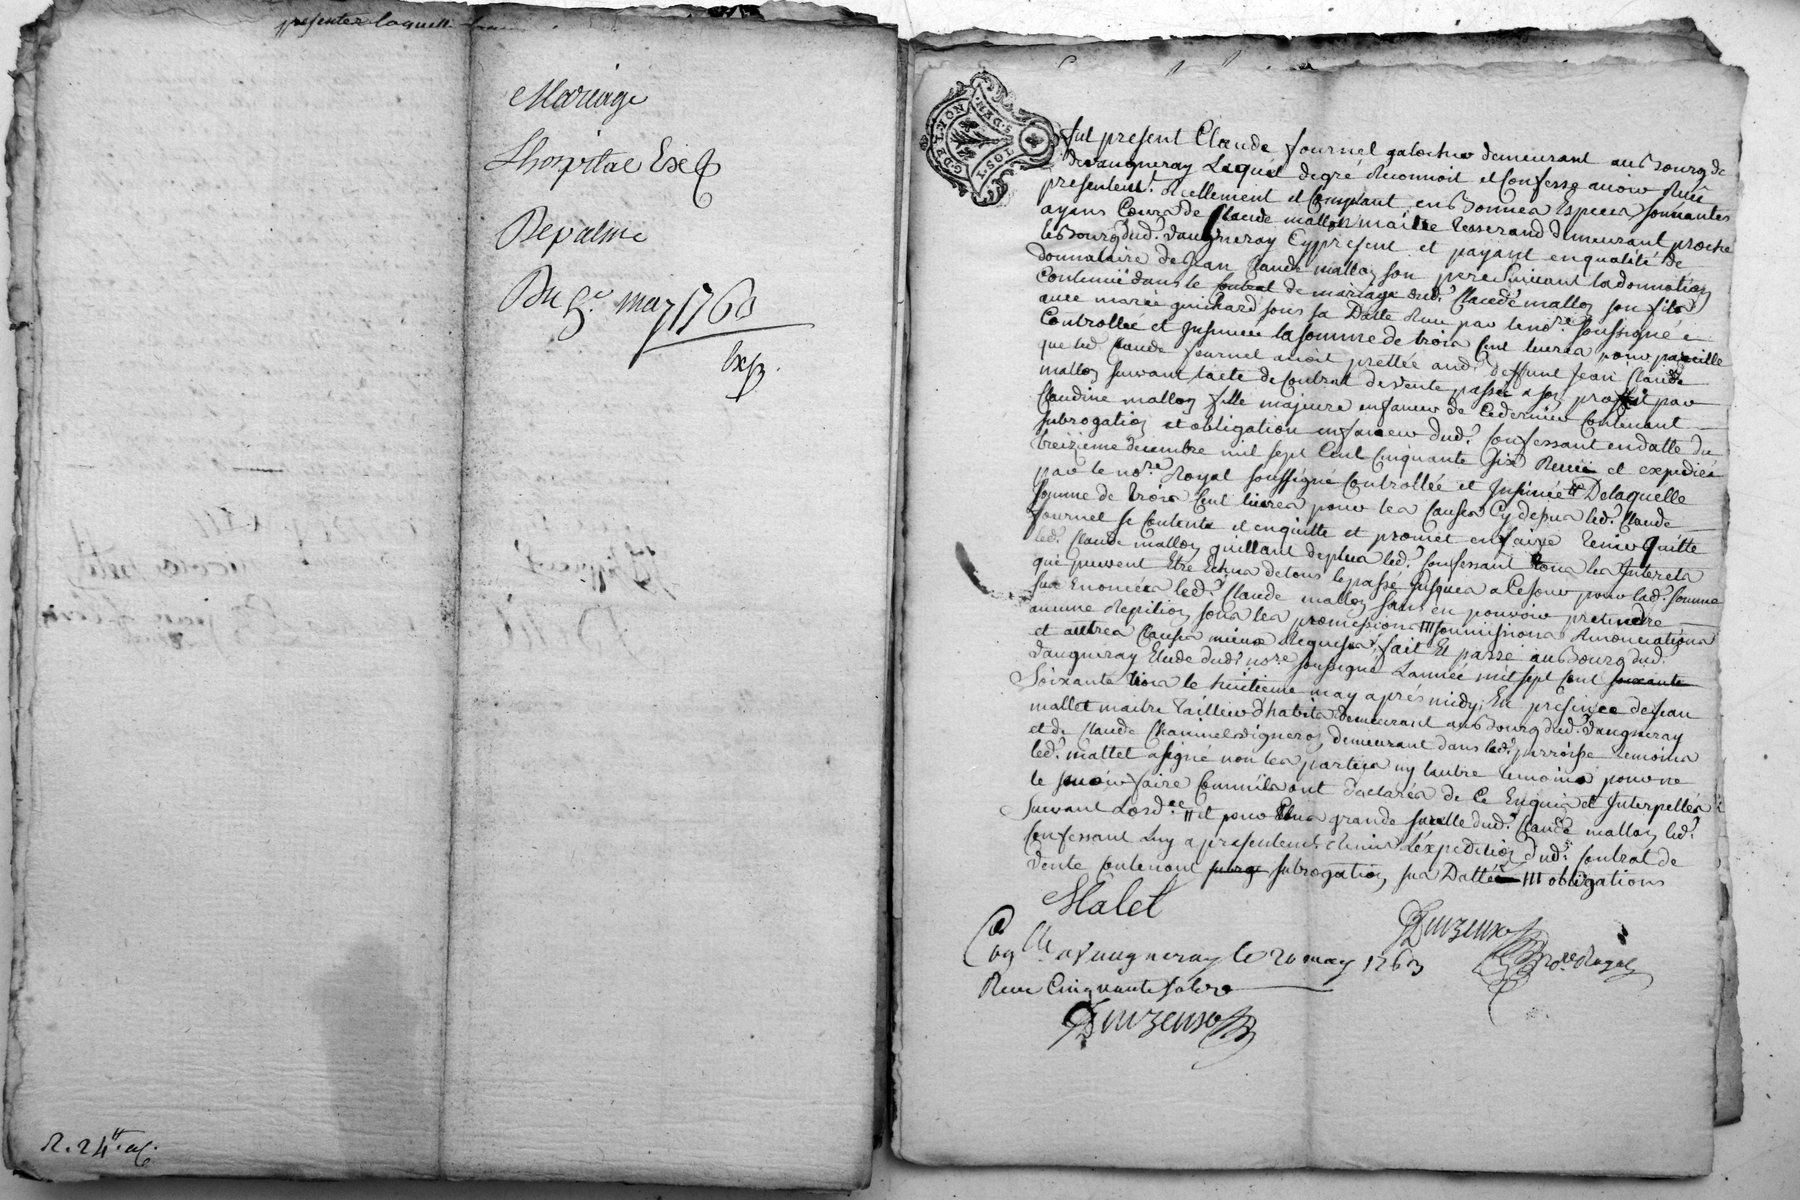 presenter laquelle
Mariage
Lhospital
Depalme
Du 5e may 1760
Exp
R. 24tt
GDE LYON
1 SOL
8 DEN
fut present Claude fournel galochier demeurant au Bourg de
Devaugneray Lequel degré Reconnoit et Confesse avoir Reçû
presentemt. Réellement et Comptant en Bonnes Especes sonnantes
ayans Cours De Claude mallon maitre tesserand Demeurant proche
le Bourg dud. Vaugneray Cy présent et payant en qualité de
Donnataire de Jean Claude mallon son pere suivant la donnation
Contenüe dans le Contrat de mariage dud. Claude mallon son fils
avec marie guichard sous sa Datte Reçu par le nore. soussigné
Controllée et Jnsinuée la somme de trois Cent livres pour pareille
que led. Claude fournel avoit prettée aud. deffunt Jean Claude
mallon suivant lacte de Contrat de vente passée a son proffit par
Claudine mallon fille majeure en faveur de Cedernier Contenant
subrogation et obligation en faveur dud. Confessant en datte du
treizieme decembre mil sept Cent Cinquante Six Reçüe et expediée
par le nore. Royal soussigné Controllée et Jnsinuée tt Delaquelle
somme de trois Cent livres pour les Causes Cy depus led. Claude
fournel se Contente et enquitte et promet en faire tenir quitte
led. Claude mallon quittant deplus led. Confessant tous les Jnterets
qui peuvent Etre echus de tous le passé Jusques a Cejour pour lad. somme
sus Enoncées led. Claude mallon sans en pouvoir pretendre
aucune Repetition sous les promissions soumissions Renonciations
et autres Clauses mieux Requises, fait Et passé au Bourg dud.
Vaugneray Etude dud. nore soussigné Lannée mil sept Cent soixante
Soixante trois le huitieme may après midy, En présence de Jean
mallet maitre tailleur d'habits demeurant au Bourg dud. Vaugneray
et de Claude Chammel vigneron demeurant dans lad. parroisse temoins
led. mallet a signé non les parties ny lautre temoins pour ne
le sçavoir faire Comm'ils ont Declarés de Ce Enquis et Jnterpellés
suivant Lordce. tt et pour plus grande seurette dud. Claude mallon led.
Confessant Luy a presentemt. remis L'expedition dud. Contrat de
Vente Contenant subrogation sus Dattée obligations
Malet
Duzeuxo
nore Royal
Conlle. a Vaugneray le 20 may 1763
Reçu Cinquante sols
Duzeuxo